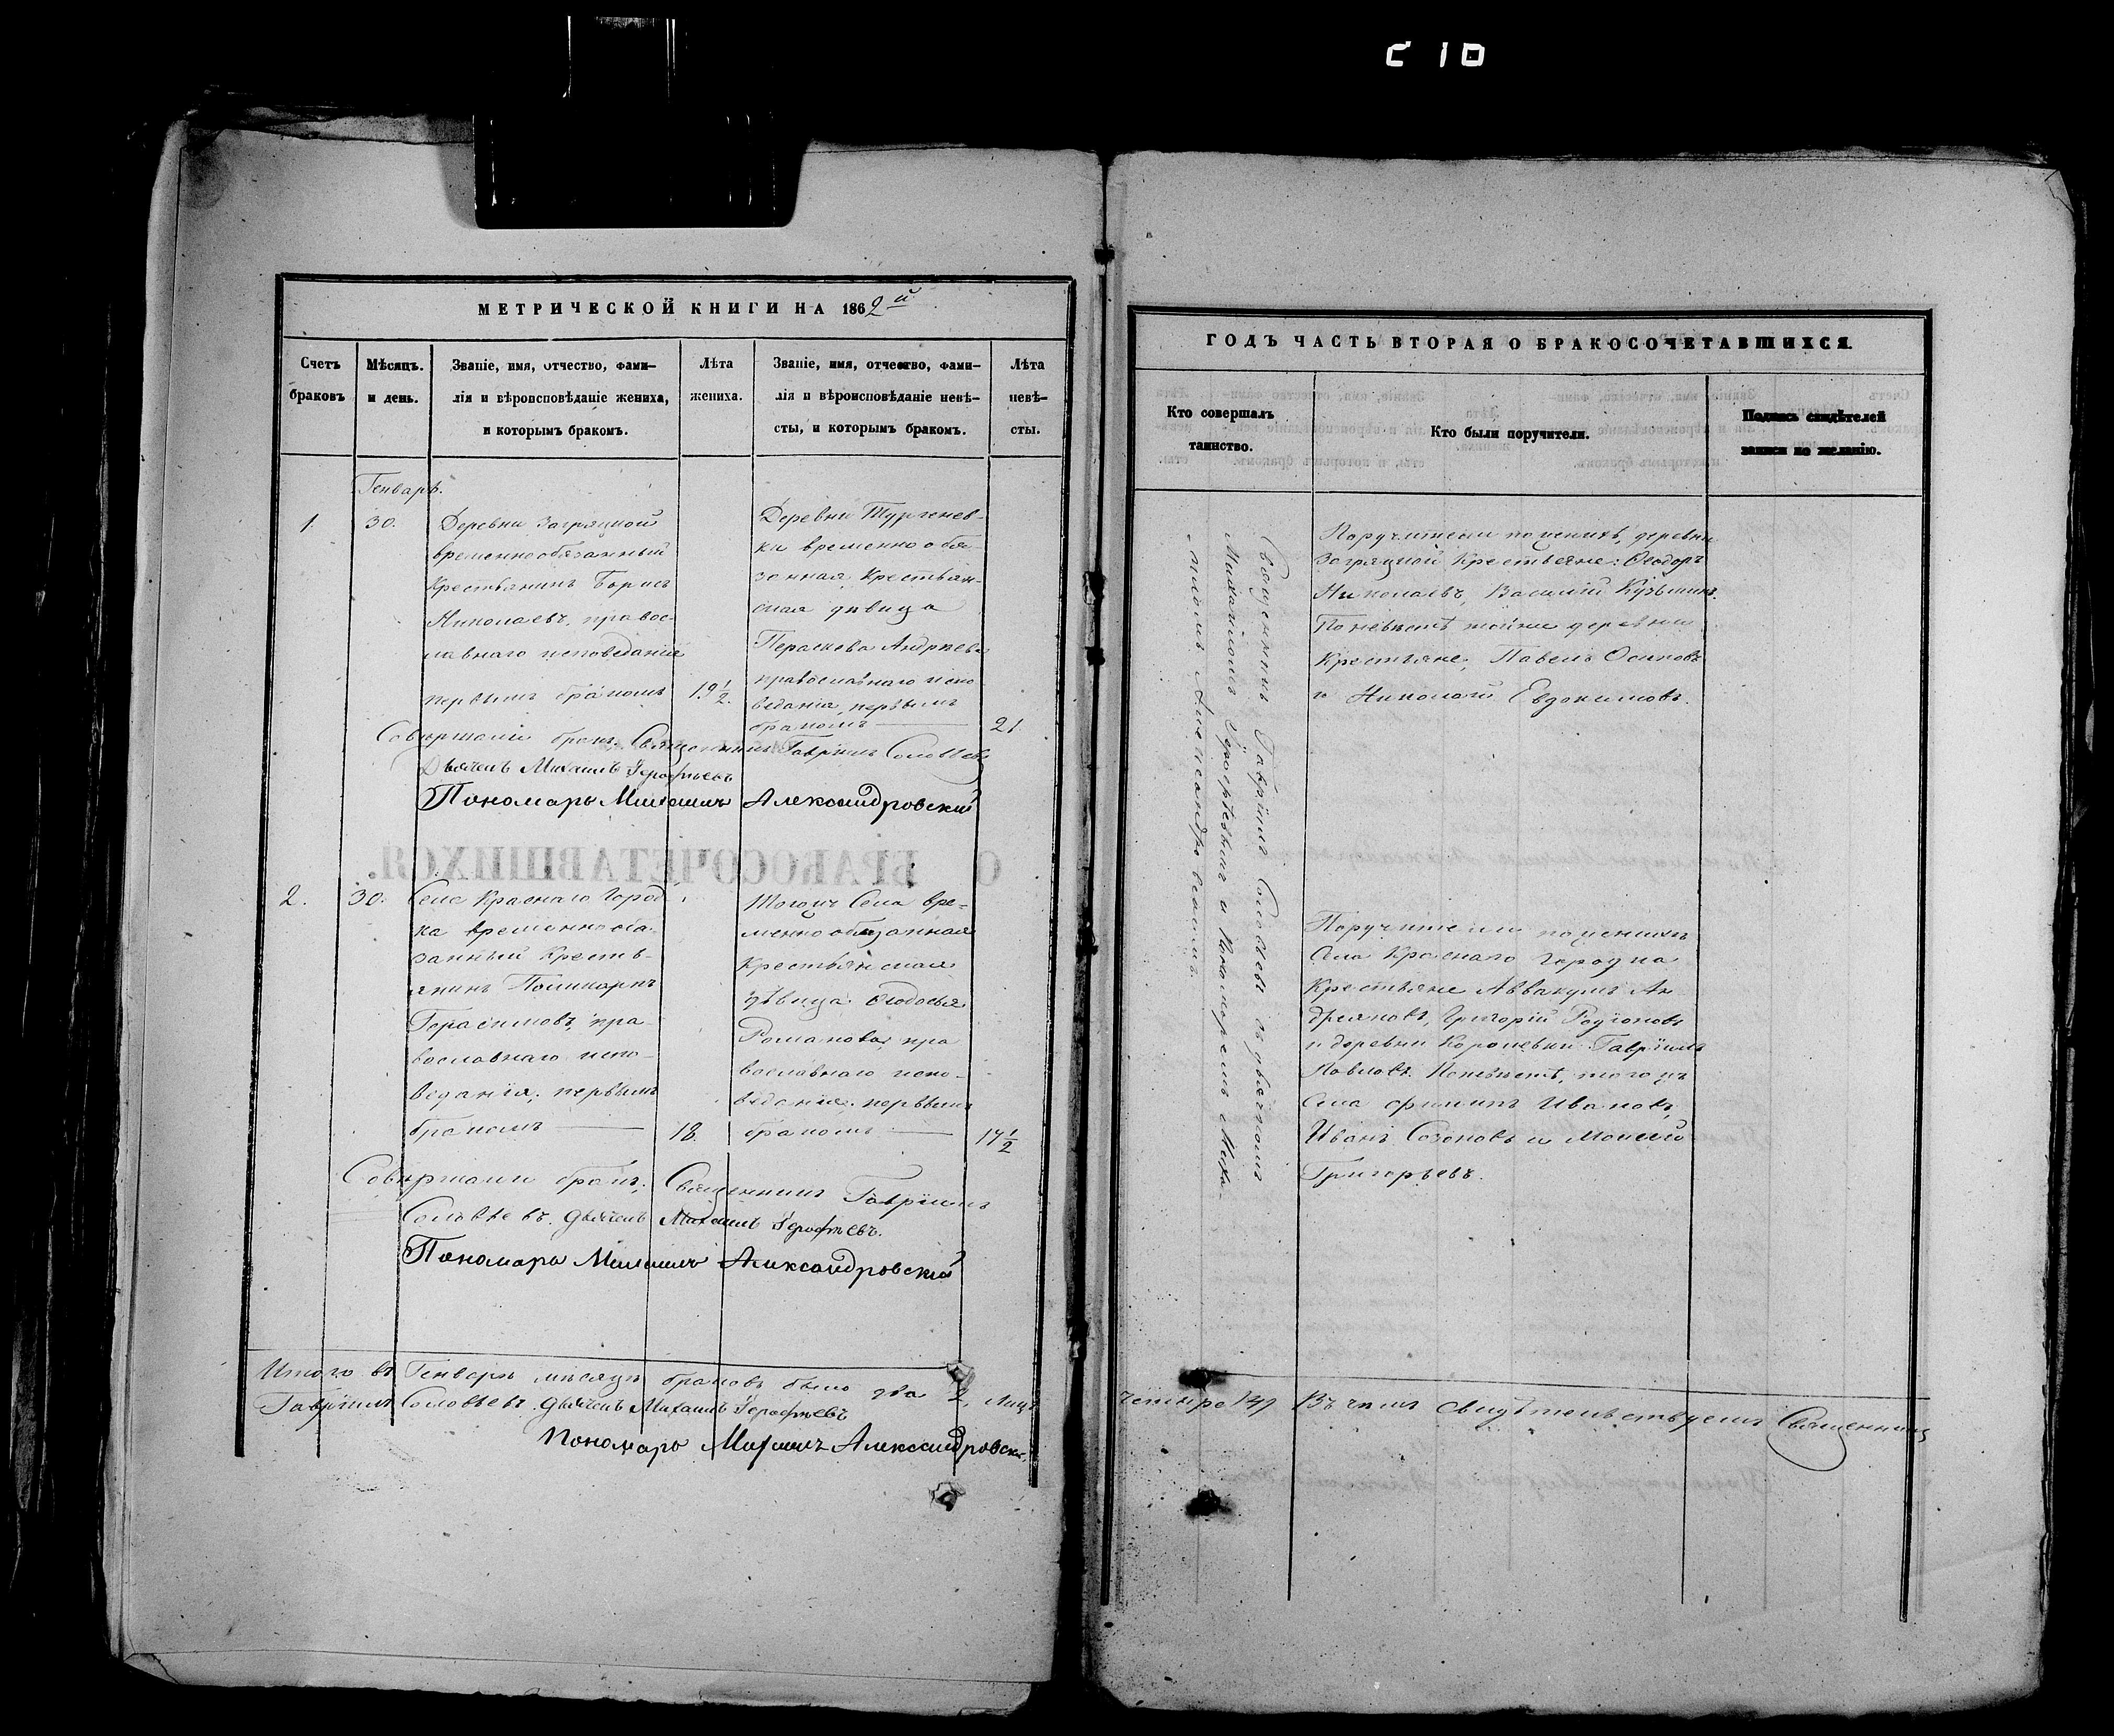 С 10
МЕТРИЧЕСКОЙ КНИГИ НА 1862й
Счетъ браковъ
Мѣсяцъ. и день.
Званіе, имя, отчество, фами-
лія и вѣроисповѣданіе жениха,
и которымъ бракомъ.
Лѣта жениха.
Званіе, имя, отчество, фами-
лія и вѣроисповѣданіе невѣ-
сты, и которымъ бракомъ.
Лѣта невѣ-
сты.
Генварь.
1. 30.
Деревни Загряцкой
временнообязанный
Крестьянинъ Борисъ
Николаевъ, правос-
лавнаго исповеданія
первымъ бракомъ 19 1/2.
Деревни Тургенев-
ки временнообя-
занная Крестьян-
ская дѣвица
Параскева Андреева
православнаго испо
веданія, первымъ
бракомъ 21
Совершали бракъ: Священникъ Гавріилъ Соловьевъ
Дьячекъ Михаилъ Герофѣевъ
Пономарь Михаилъ Александровскій
2. 30.
Села Краснаго Город
ка временнообя-
занный Кресть-
янинъ Поликарпъ
Герасимовъ, пра-
вославнаго испо-
веданія, первымъ
бракомъ 18.
Тогожъ Села вре-
меннообязанная
Крестьянская
дѣвица Ѳеодосья
Романова, пра
вославнаго испо-
веданія. первымъ
бракомъ 17 1/2
Совершали бракъ: Священникъ Гавріилъ
Соловьевъ. Дьячекъ Михаилъ Герофѣевъ.
Пономарь Михаилъ Александровскій
Итого въ Генварѣ мѣсяцѣ браковъ было два 2, лицъ
Гавріилъ Соловьевъ Дьячекъ Михаилъ Герофѣевъ
Пономарь Михаилъ Александровскій
ГОДЪ ЧАСТЬ ВТОРАЯ О БРАКОСОЧЕТАВШИХСЯ.
Кто совершалъ
таинство.
Кто были поручители.
Подпись свидѣтелей
записи по желанію.
Священникъ Гавріилъ Соловьевъ съ дьячкомъ
Михаиломъ Герофѣевымъ и Пономаремъ Миха-
иломъ Александровскимъ.
Поручители по женихѣ, деревни
Загряцкой Крестьяне: Ѳеодоръ
Николаевъ, Василій Кузьминъ.
По невѣстѣ тойже деревни
Крестьяне, Павелъ Осиповъ
и Николай Евдокимовъ.
Поручители по женихѣ
Села Краснаго Городка
Крестьяне Аввакумъ Ан
дреяновъ, Григорій Родіоновъ
и деревни Королевки Гавріилъ
Павловъ. По невѣстѣ, тогожъ
Села Филипъ Ивановъ,
Иванъ Созоновъ и Моисей
Григорьевъ.
четыре /4/ Въ чемъ свидѣтельствуемъ Священникъ